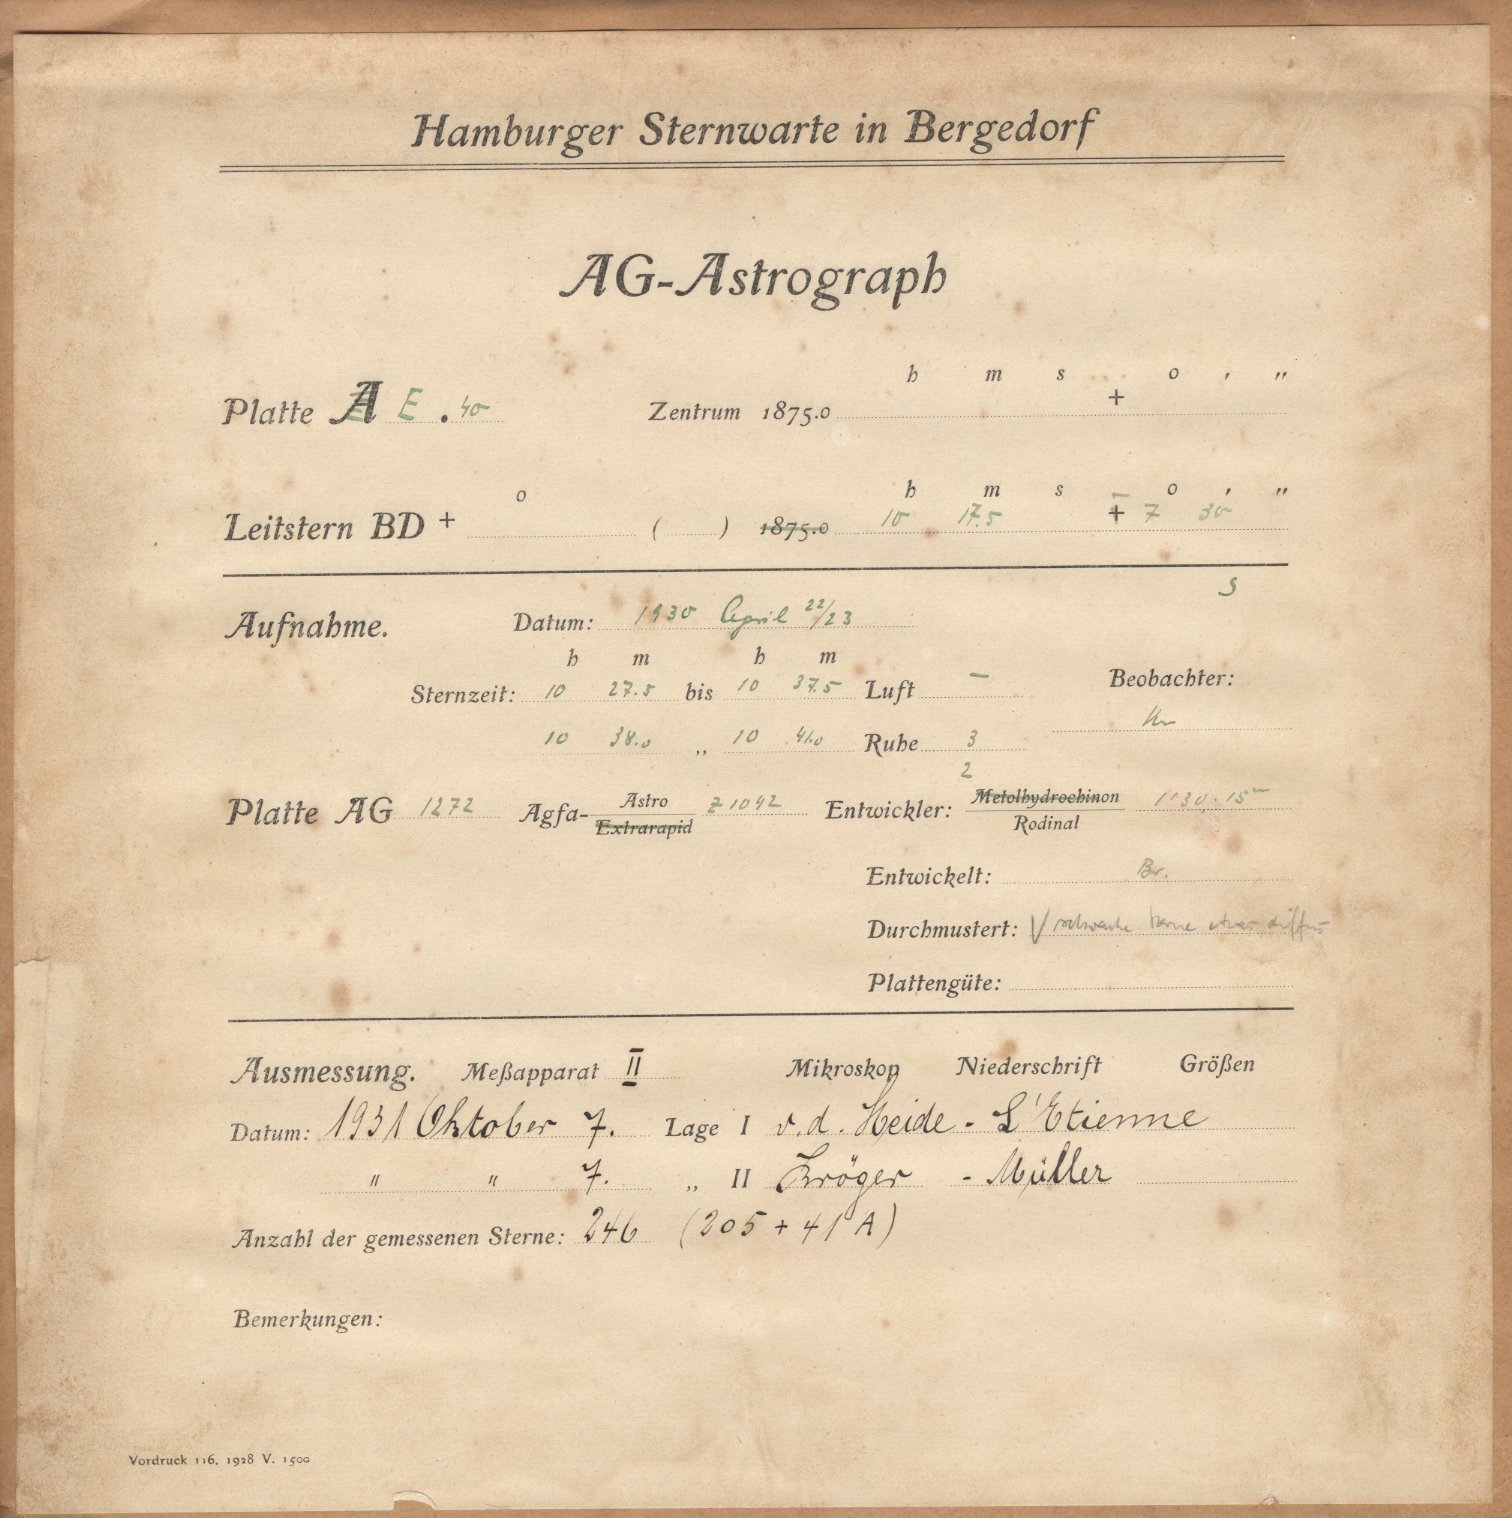 Hamburger Sternwarte in Bergedorf
AG-Astrograph
h m s o , „
Platte A E . 40 Zentrum 1875.0 +
o h m s – o , „
Leitstern BD + ( ) 1875.0 10 17.5 + 7 30
S
Aufnahme. Datum: 1930 April 22/23
h m h m
Sternzeit: 10 27.5 bis 10 37.5 Luft – Beobachter:
10 38.0 „ 10 41.0 Ruhe 3
2
Platte AG 1272 Agfa- Astro Z 1042 Entwickler: Metolhydrochinon 1:30, 15m
Extrarapid Rodinal
Entwickelt: Br.
Durchmustert: √ schwache Sterne etwas diffus
Plattengüte:
Ausmessung. Meßapparat II Mikroskop Niederschrift Größen
Datum: 1931 Oktober 7. Lage I v.d. Heide - L'Etienne
" " 7. „ II Kröger - Müller
Anzahl der gemessenen Sterne: 246 (205 + 41 A)
Bemerkungen:
Vordruck 116. 1928 V. 1500